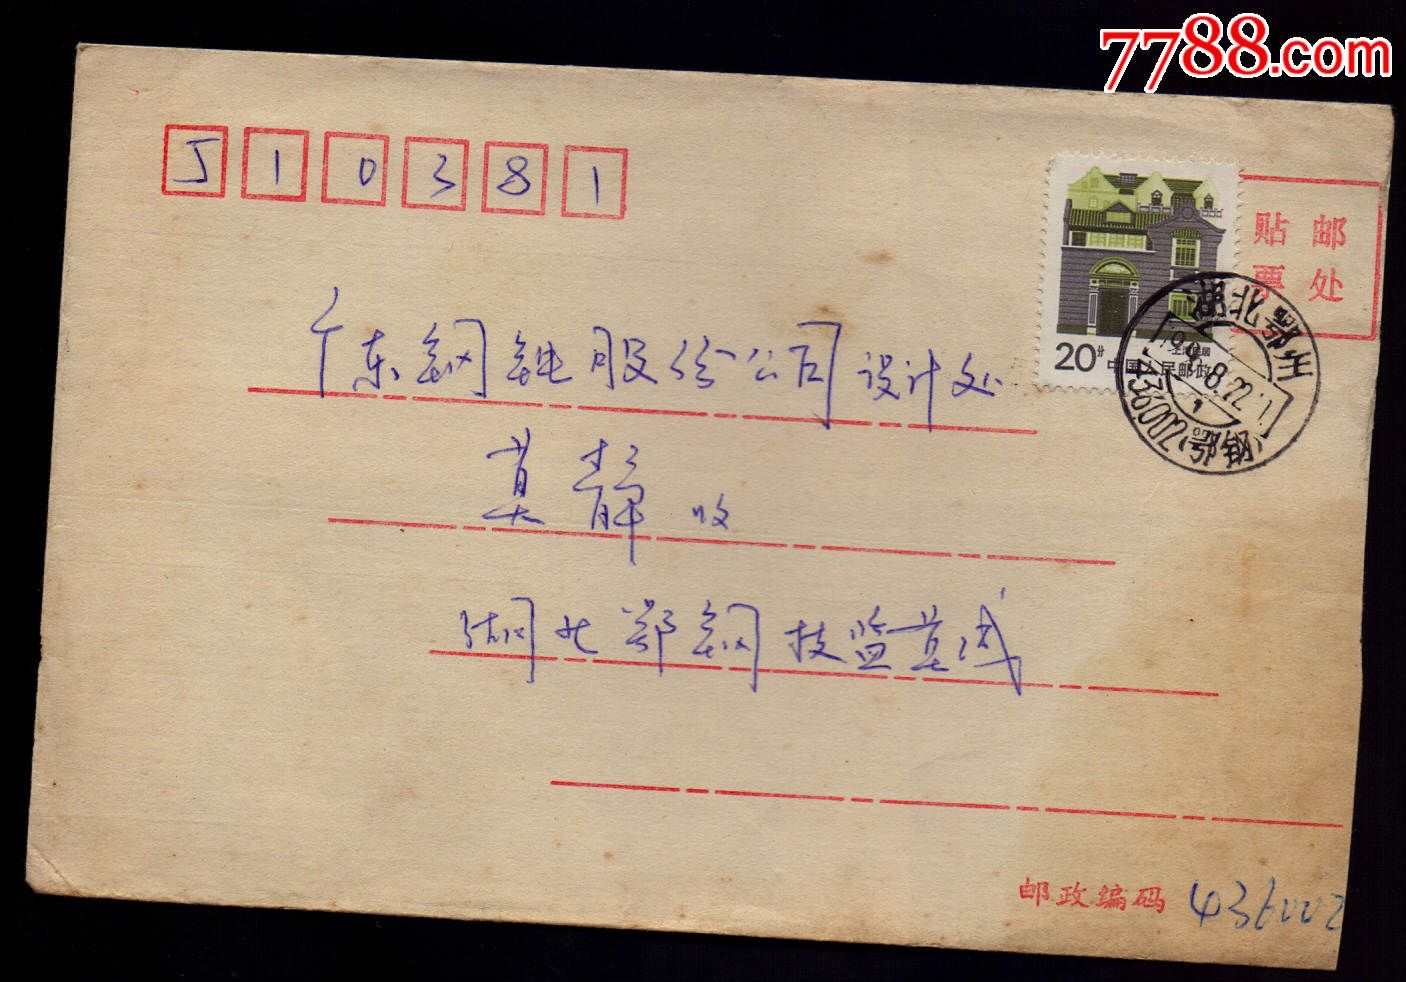 7788.com
510381
贴邮
票处
20分
中国人民邮政
上海民居
湖北鄂州
436002(鄂钢)
广东钢铁股份公司设计处
莫静 收
湖北鄂钢技监莫成
邮政编码 436002